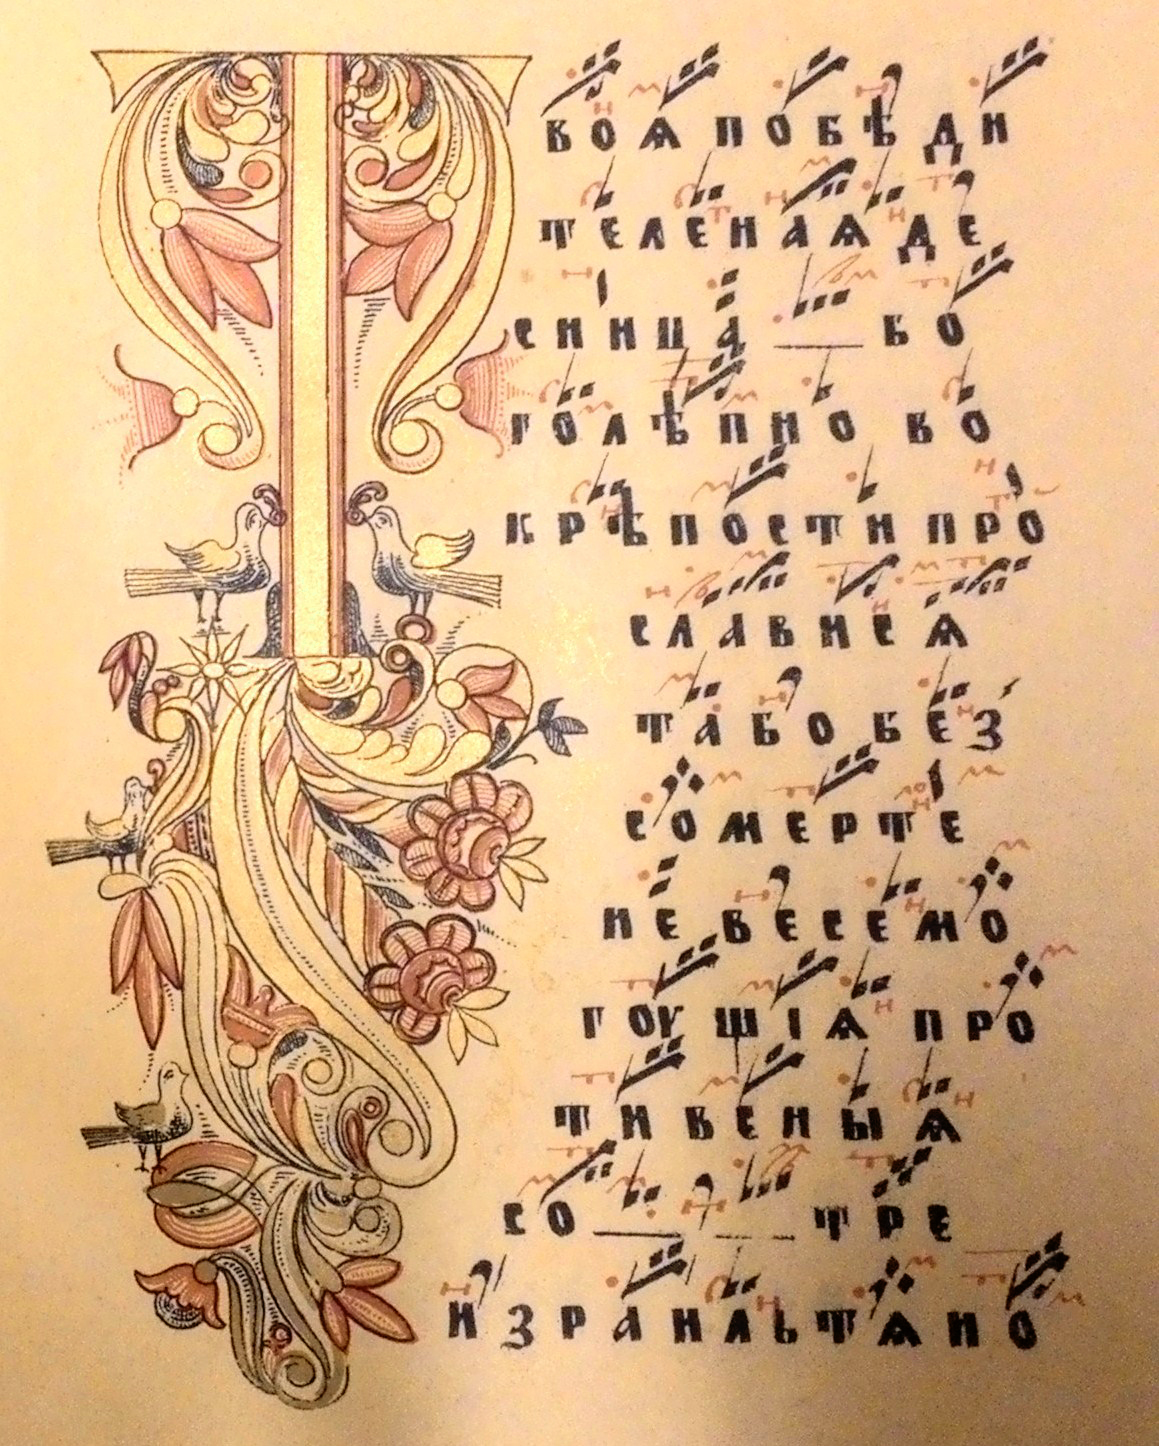 Твоѧ побѣди
теленаѧ де
сница бо
голѣпно во
крѣпости про
слависѧ
та бо без
сомерте
не весемо
гоушіѧ про
тивеныѧ
со тре
израильтѧно